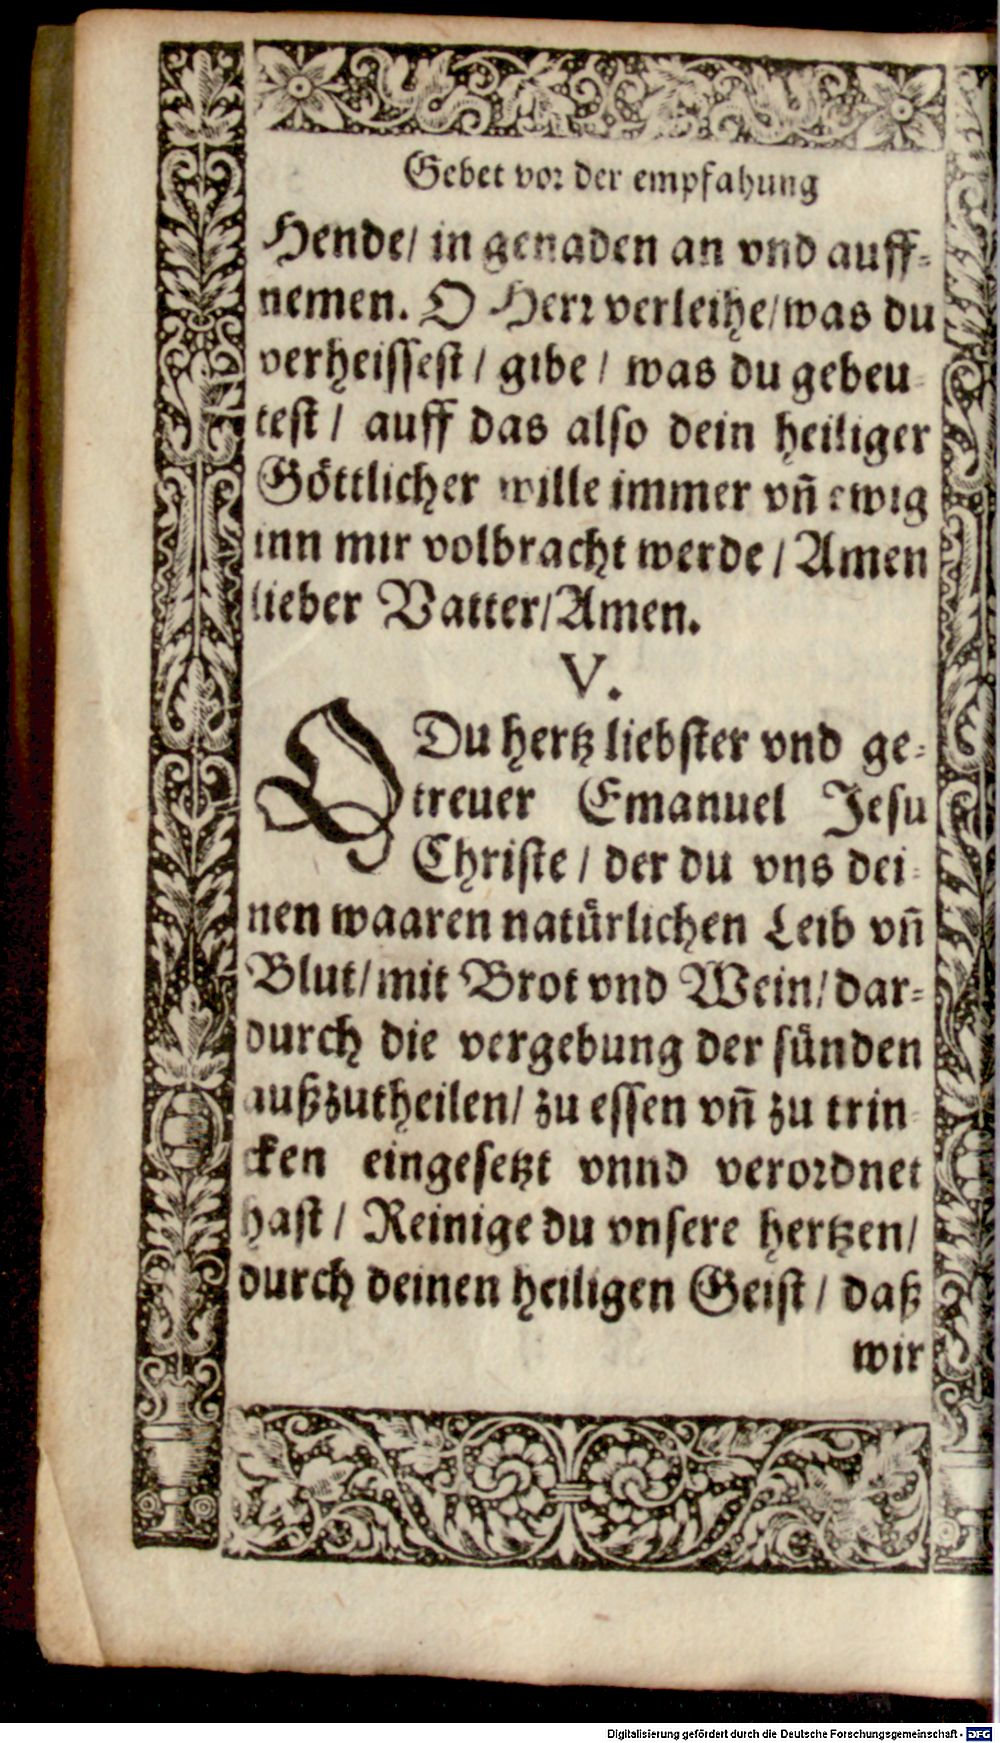 Gebet vor der empfahung
Hende/ in genaden an vnd auff-
nemen. O Herr verleihe/ was du
verheissest / gibe / was du gebeu-
test / auff das also dein heiliger
Göttlicher wille immer vñ ewig
inn mir volbracht werde / Amen
lieber Vatter/ Amen.
V.
O Du hertz liebster vnd ge-
treuer Emanuel Jesu
Christe / der du vns dei-
nen waaren natürlichen Leib vñ
Blut/ mit Brot vnd Wein/ dar-
durch die vergebung der sünden
außzutheilen/ zu essen vñ zu trin-
cken eingesetzt vnnd verordnet
hast / Reinige du vnsere hertzen/
durch deinen heiligen Geist / daß
wir
Digitalisierung gefördert durch die Deutsche Forschungsgemeinschaft - DFG